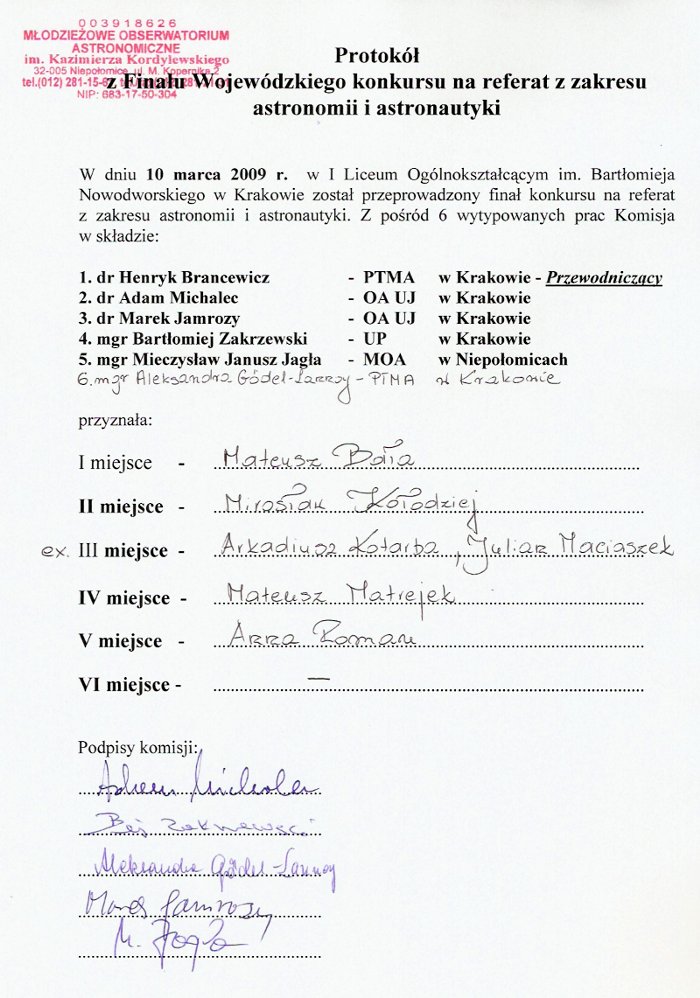 003918626
MŁODZIEŻOWE OBSERWATORIUM
ASTRONOMICZNE
im. Kazimierza Kordylewskiego
32-005 Niepołomice, ul. M. Kopernika 2
tel.(012) 281-15-6
NIP: 683-17-50-304
Protokół
z Finału Wojewódzkiego konkursu na referat z zakresu
astronomii i astronautyki
W dniu 10 marca 2009 r. w I Liceum Ogólnokształcącym im. Bartłomieja
Nowodworskiego w Krakowie został przeprowadzony finał konkursu na referat
z zakresu astronomii i astronautyki. Z pośród 6 wytypowanych prac Komisja
w składzie:
1. dr Henryk Brancewicz - PTMA w Krakowie - Przewodniczący
2. dr Adam Michalec - OA UJ w Krakowie
3. dr Marek Jamrozy - OA UJ w Krakowie
4. mgr Bartłomiej Zakrzewski - UP w Krakowie
5. mgr Mieczysław Janusz Jagła - MOA w Niepołomicach
6. mgr Aleksandra Gódel-Lannoy - PTMA w Krakowie
przyznała:
I miejsce - Mateusz Bała
II miejsce - Mirosław Kołodziej
ex. III miejsce - Arkadiusz Kotarba, Julian Maciaszek
IV miejsce - Mateusz Matrejek
V miejsce - Anna Roman
VI miejsce - —
Podpisy komisji:
Adam Michalec
Aleksandra Gódel-Lannoy
Marek Jamrozy
M. Jagła